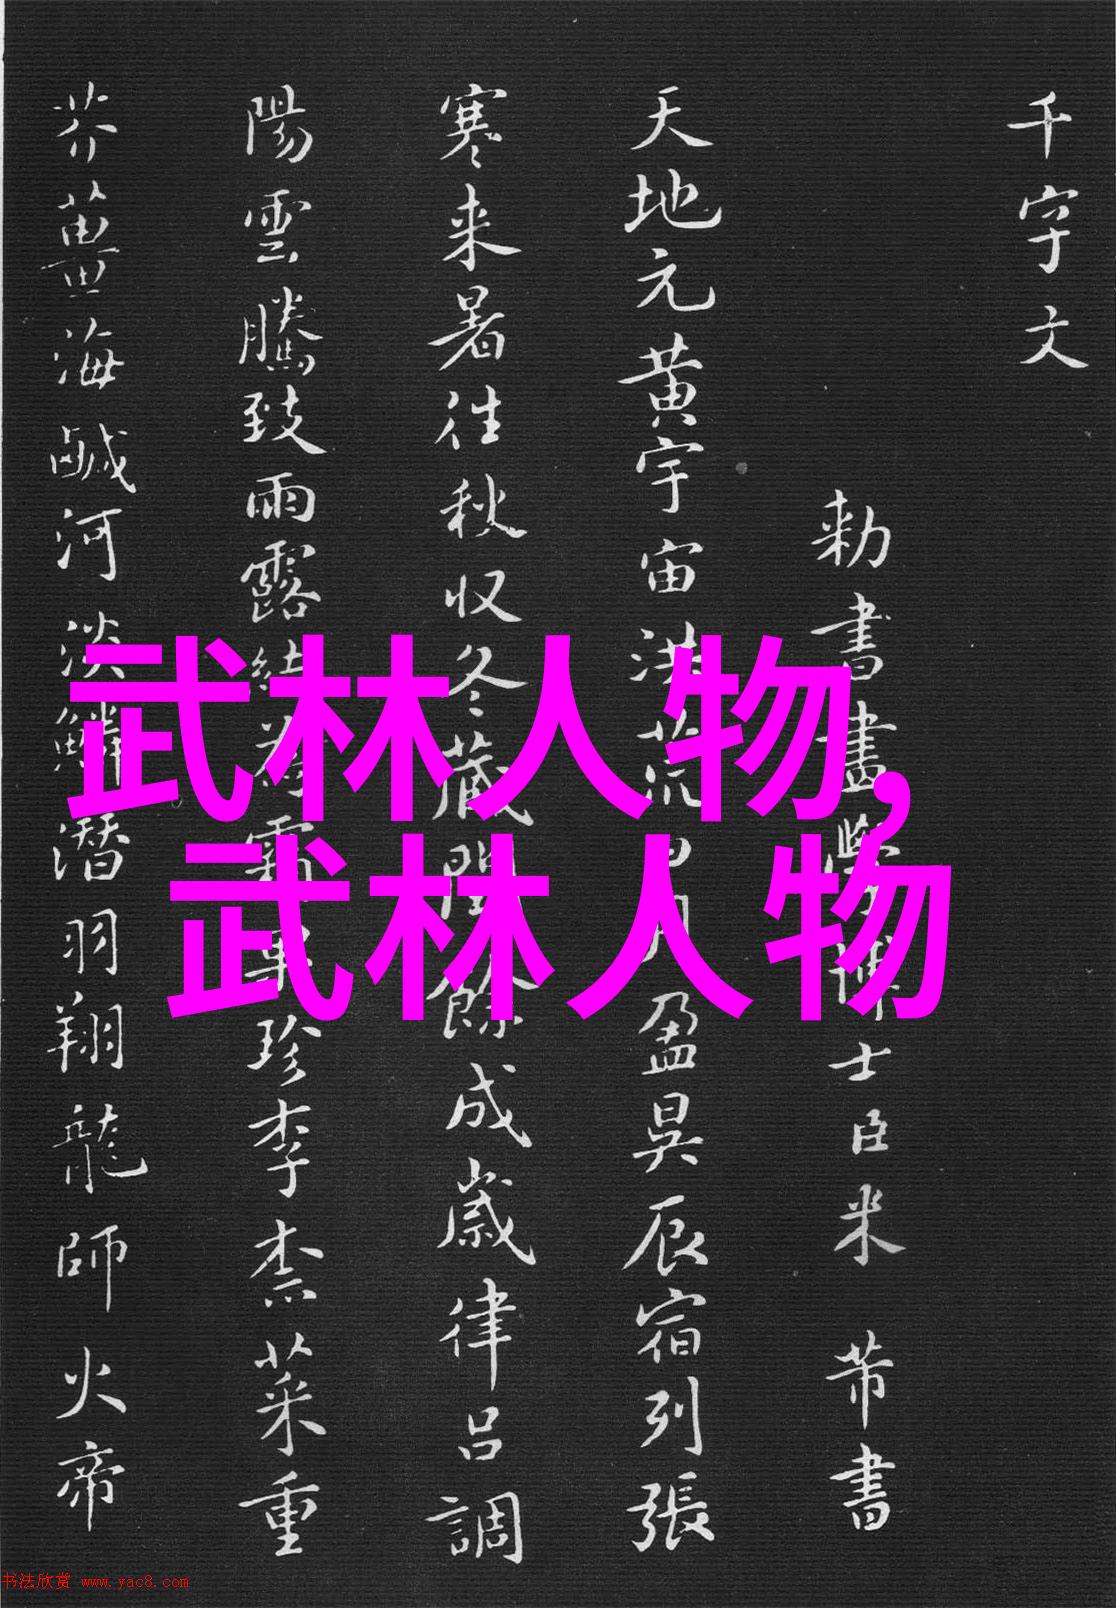 千字文
勅書畫學博士臣米 芾書
天地元黄宇宙洪荒日月盈昃辰宿列張
寒来暑往秋収冬蔵閏餘成歳律吕調
陽雲騰致雨露結為霜果珍李柰菜重
芥薑海鹹河淡鱗潜羽翔龍師火帝
武林人物,
武林人物
书法欣赏 www.yac8.com